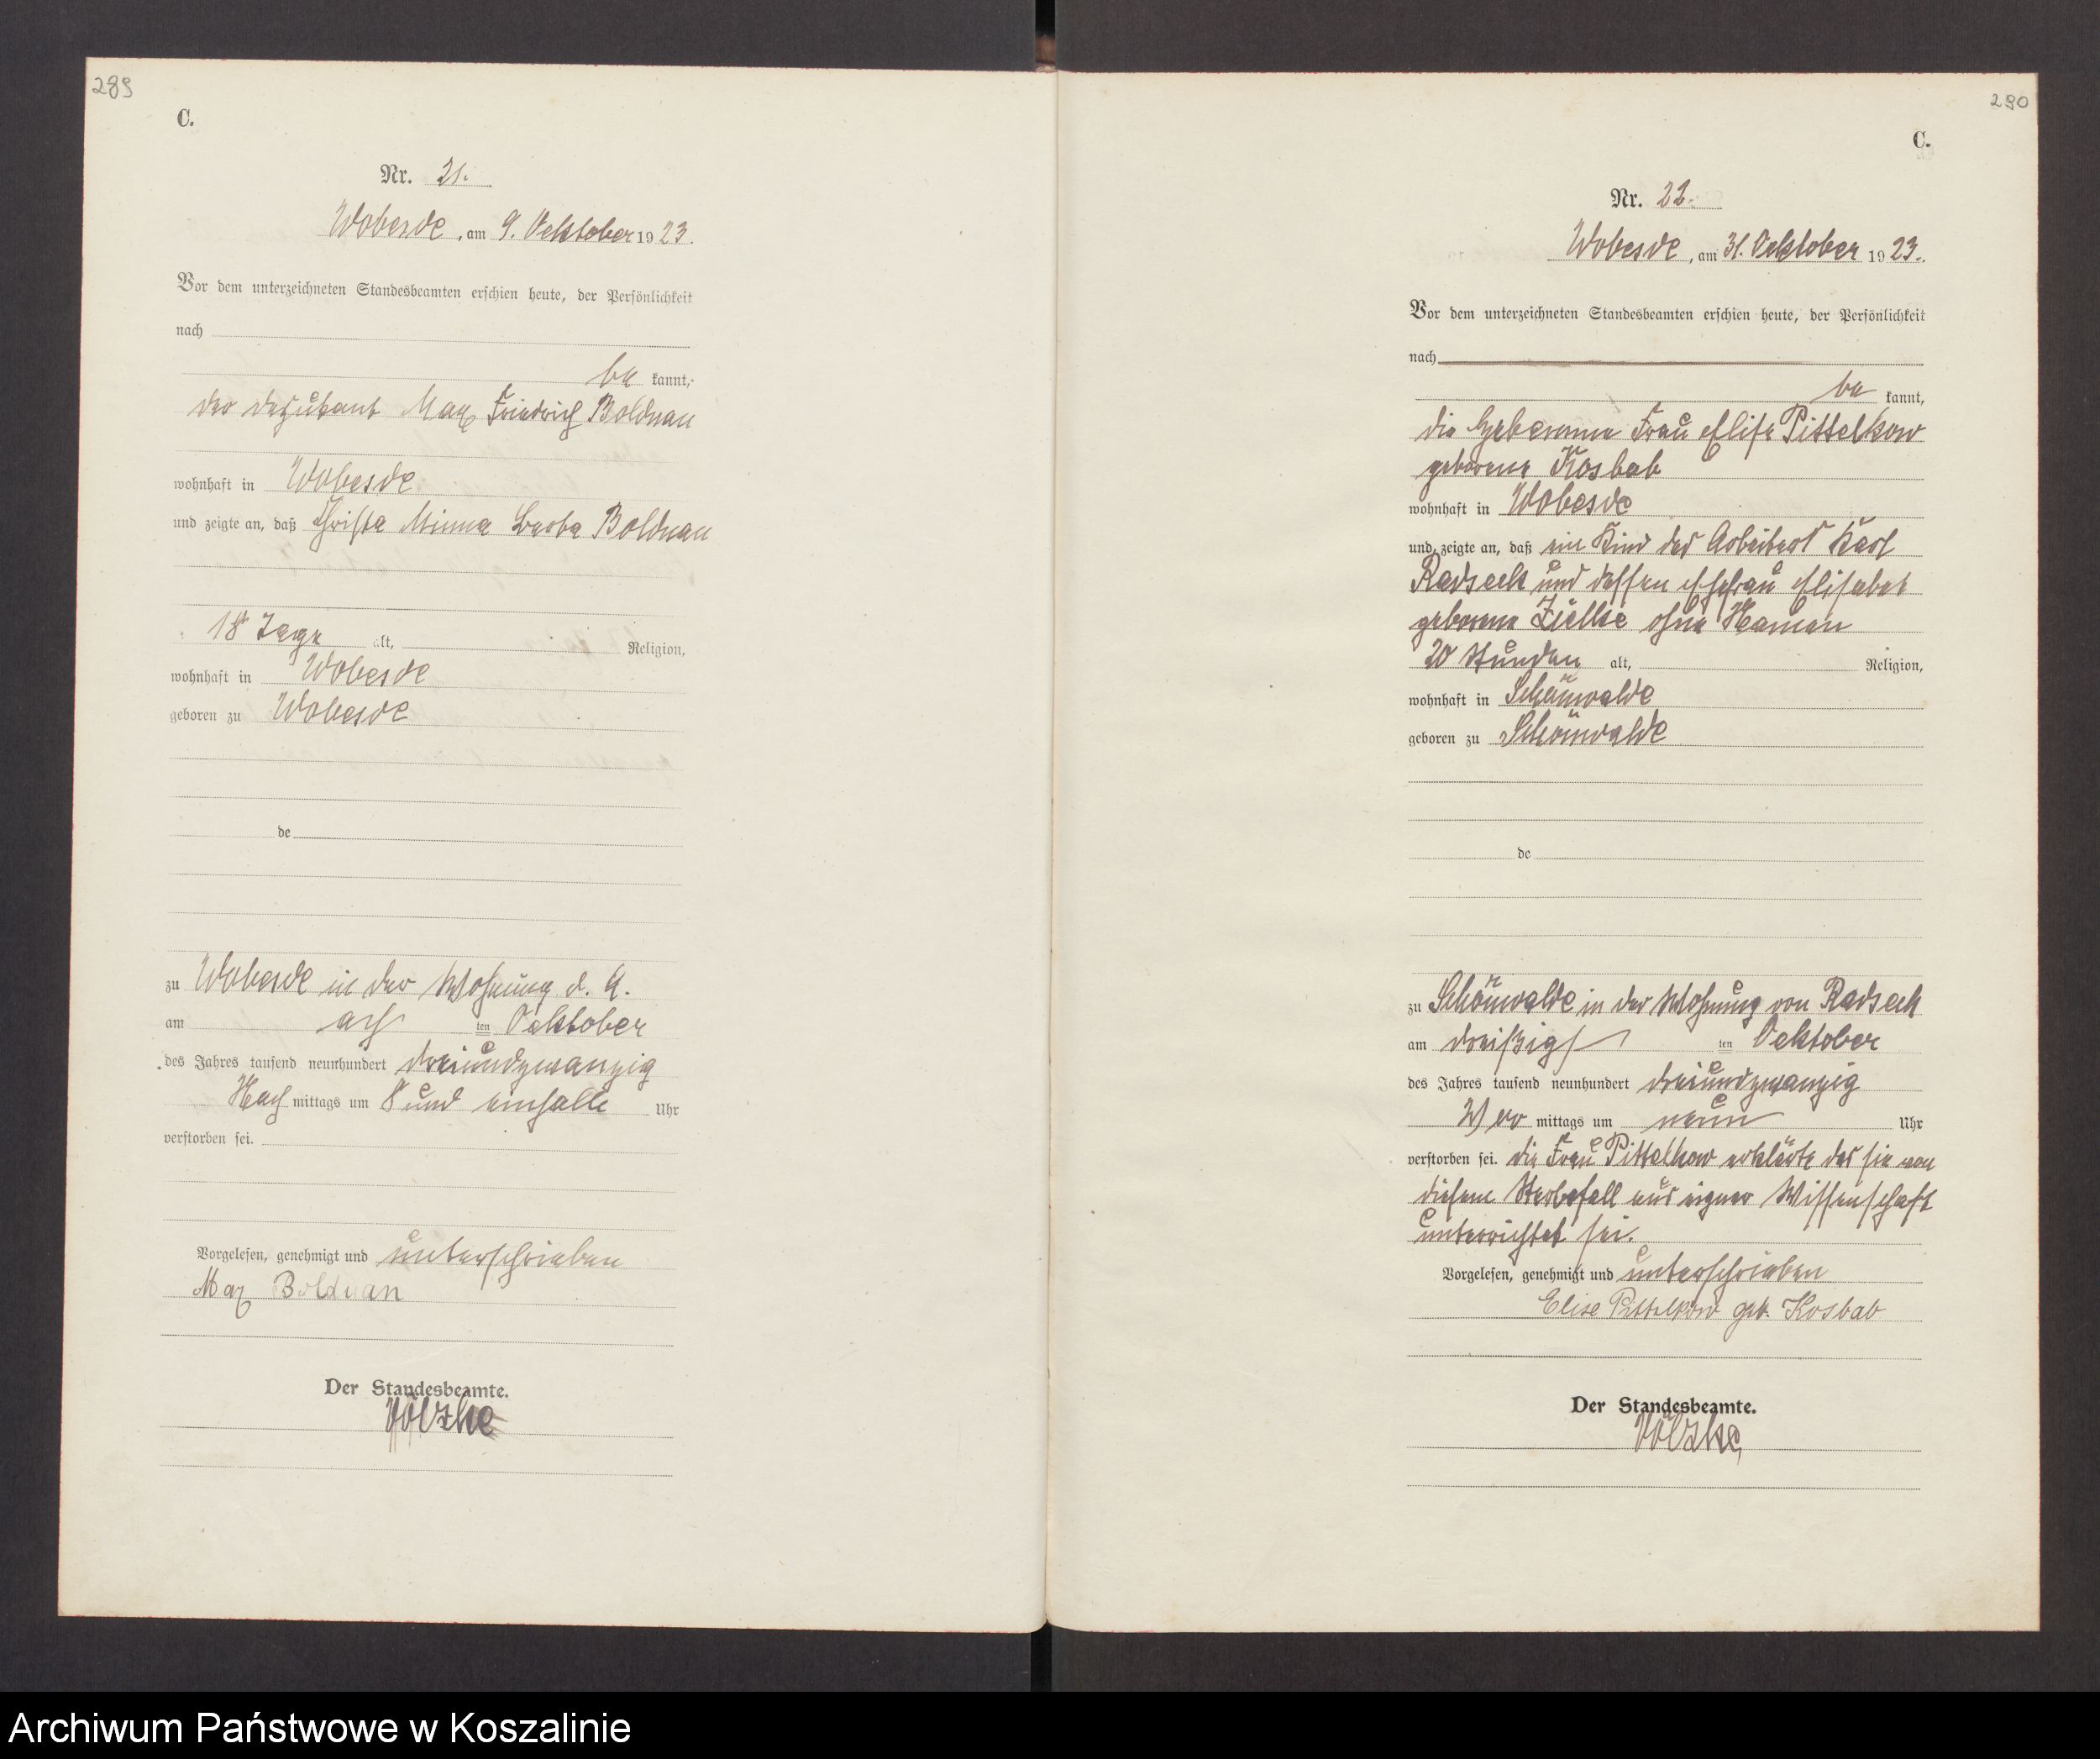 289
C.
Nr. 21.
Wobesde, am 9. Oektober 1923.
Vor dem unterzeichneten Standesbeamten erschien heute, der Persönlichkeit
nach
be kannt,
der Deputant Max Friedrich Bolduan
wohnhaft in Wobesde
und zeigte an, daß Christa Minna Berta Bolduan
18 Tage alt, Religion,
wohnhaft in Wobesde
geboren zu Wobesde
de
zu Wobesde in der Wohnung d. A.
am ach ten Oektober
des Jahres tausend neunhundert dreiundzwanzig
Nach mittags um 8 und einhalb Uhr
verstorben sei.
Vorgelesen, genehmigt und unterschrieben
Max Bolduan
Der Standesbeamte.
Völzke
290
C.
Nr. 22.
Wobesde, am 31. Oektober 1923.
Vor dem unterzeichneten Standesbeamten erschien heute, der Persönlichkeit
nach
be kannt,
die Hebamme Frau Elise Pittelkow
geborene Kosbab
wohnhaft in Wobesde
und zeigte an, daß ein Kind des Arbeiters Karl
Radseck und dessen Ehefrau Elisabet
geborene Zielke ohne Namen
20 Stunden alt, Religion,
wohnhaft in Schönwalde
geboren zu Schönwalde
de
zu Schönwalde in der Wohnung von Radseck
am dreißigs ten Oektober
des Jahres tausend neunhundert dreiundzwanzig
Vor mittags um neun Uhr
verstorben sei. die Frau Pittelkow erklärte das sie von
diesem Sterbefall aus eigner Wissenschaft
unterrichtet sei.
Vorgelesen, genehmigt und unterschrieben
Elise Pittelkow geb. Kosbab
Der Standesbeamte.
Völzke
Archiwum Państwowe w Koszalinie